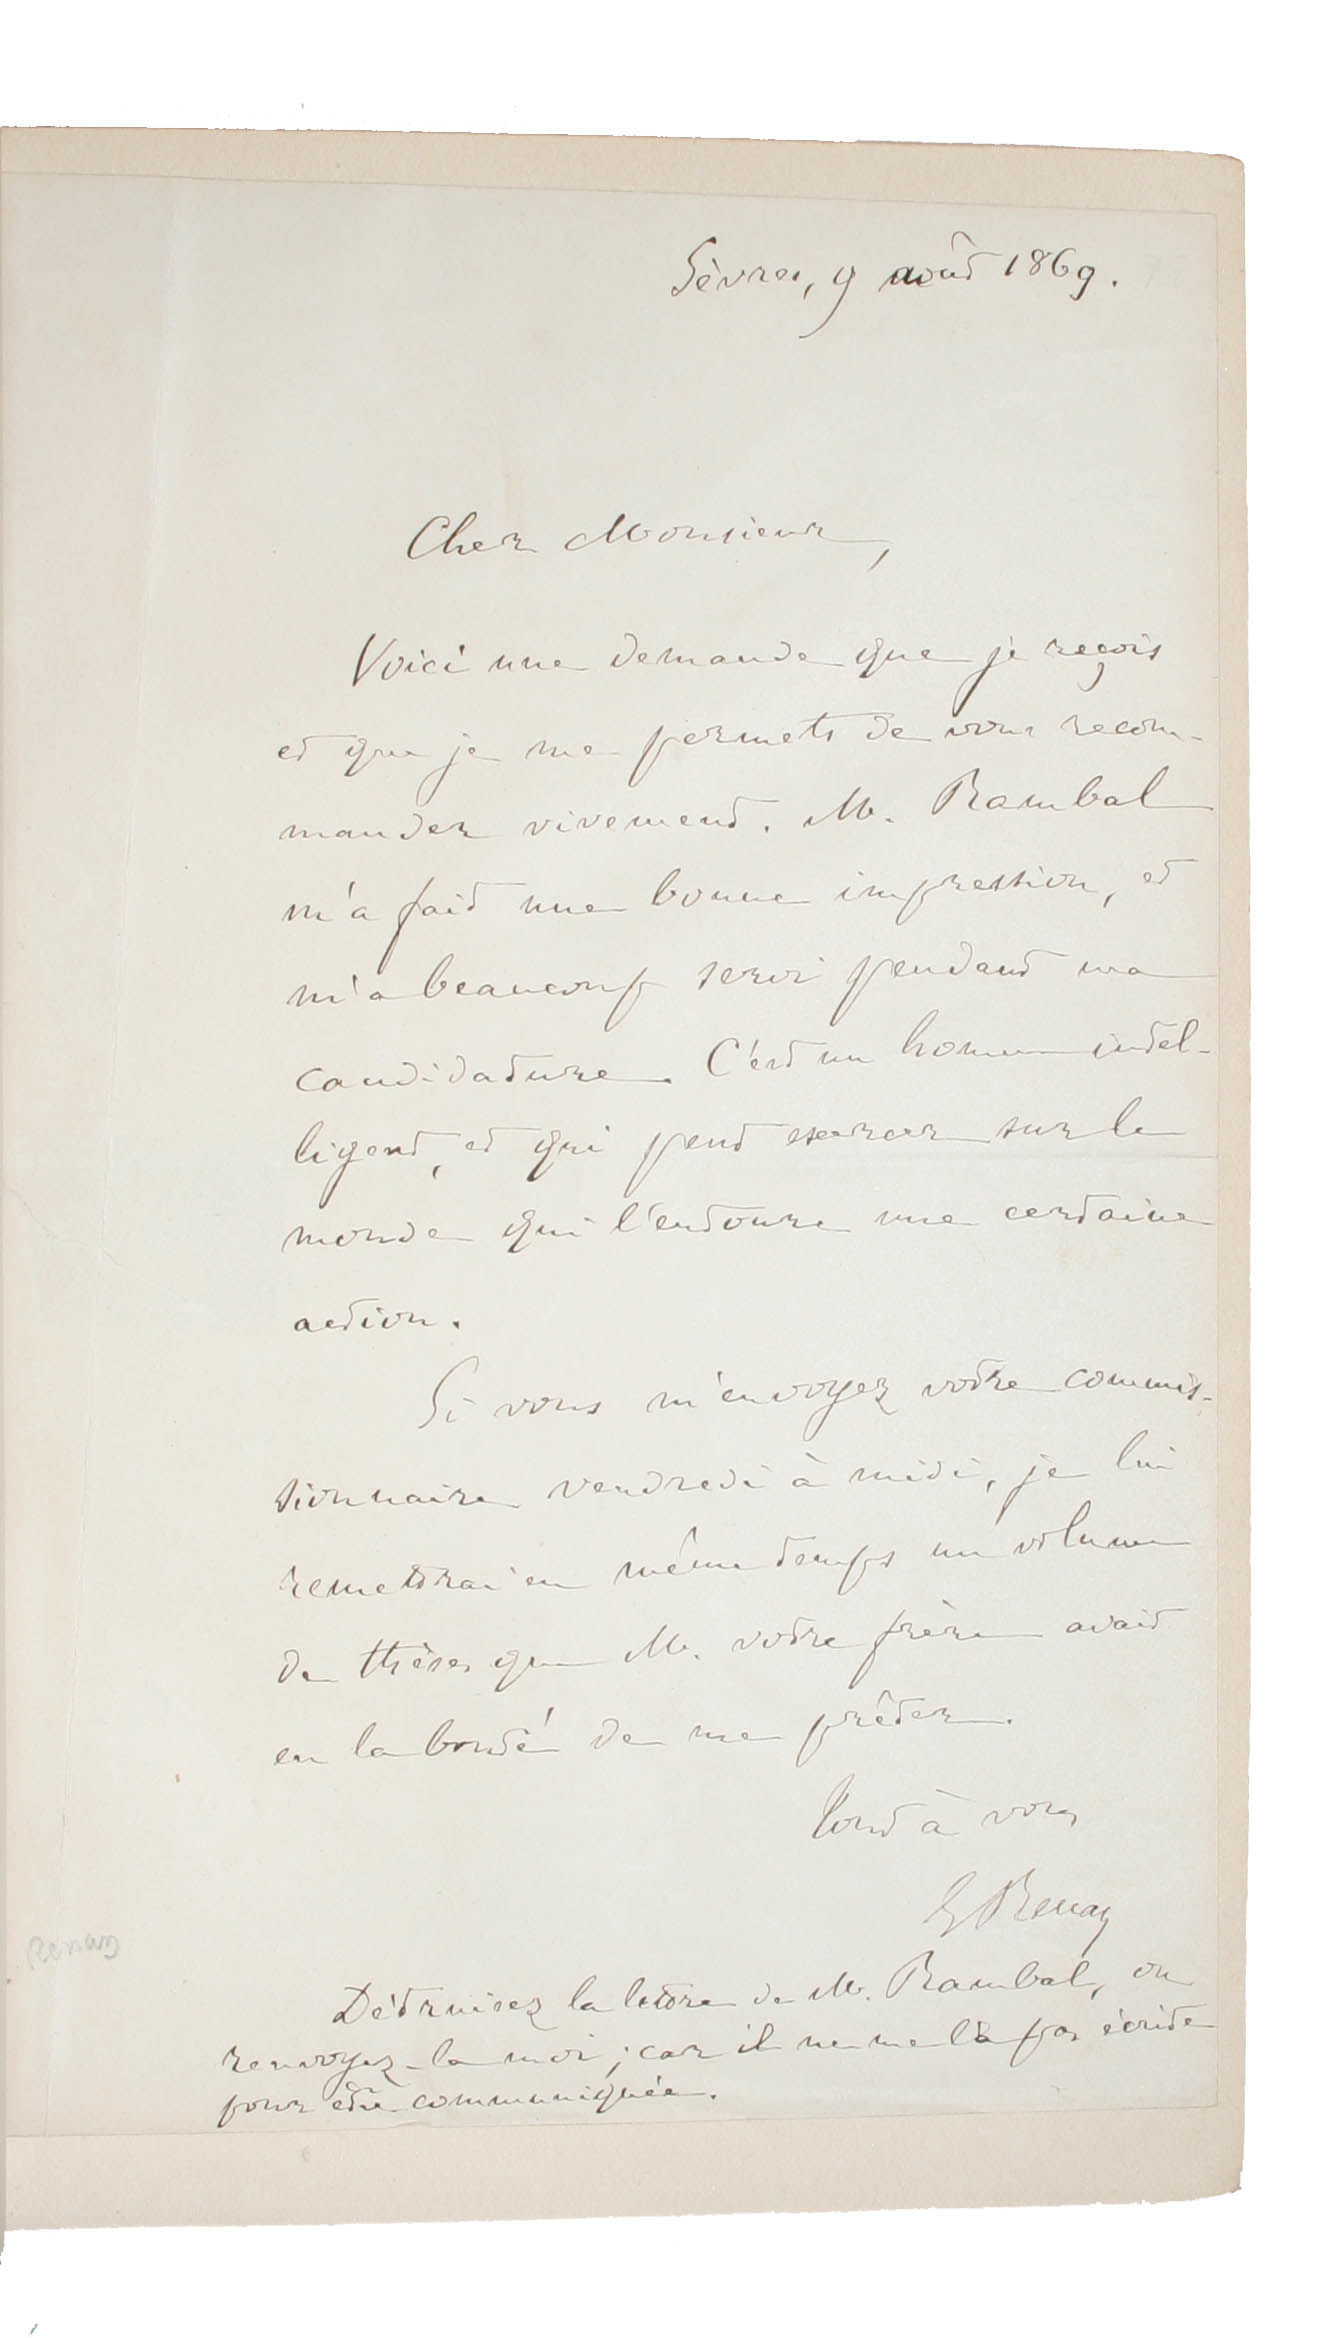 Sèvres, 9 août 1869.
Cher Monsieur,
Voici une demande que je reçois
et que je me permets de vous recom-
mander vivement. M. Rambal
m'a fait une bonne impression, et
m'a beaucoup servi pendant ma
candidature. C'est un homme intel-
ligent, et qui peut exercer sur le
monde qui l'entoure une certaine
action.
Si vous m'envoyez votre commis-
sionnaire vendredi à midi, je lui
remettrai en même temps un volume
de thèses que M. votre frère avait
eu la bonté de me prêter.
Tout à vous
E Renan
Renan
Détruisez la lettre de M. Rambal, ou
renvoyez-la moi; car il ne me l'a pas écrite
pour être communiquée.